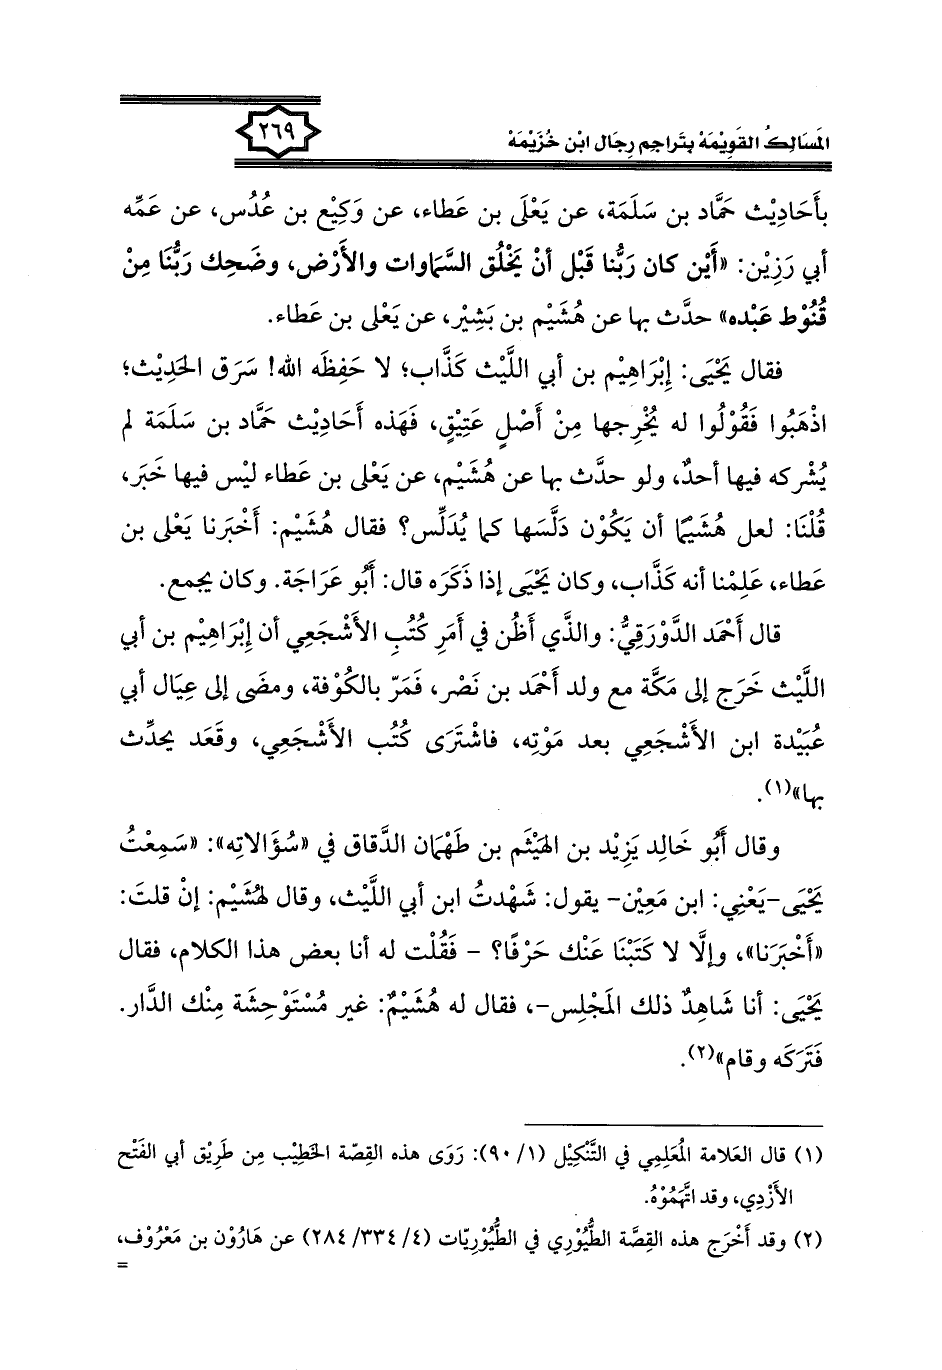 المَسَالِكُ القَوِيْمَهْ بِتَراجِم رِجَال ابْن خُزَيْمَهْ
٢٦٩
بأَحَادِيْث حَمَّاد بن سَلَمَة، عن يَعْلَى بن عَطاء، عن وَكِيْع بن عُدُس، عن عَمِّه
أبي رَزِيْن: «أَيْن كان رَبُّنا قَبْل أنْ يَخْلُق السَّماوات والأَرْض، وضَحِك رَبُّنَا مِنْ
قُنُوْط عَبْده» حدَّث بها عن هُشَيْم بن بَشِيْر، عن يَعْلى بن عَطاء.
فقال يَحْيَى: إِبْرَاهِيْم بن أبي اللَّيْث كَذَّاب؛ لا حَفِظَه الله! سَرَق الحَدِيْث؛
اذْهَبُوا فَقُوْلُوا له يُخْرِجها مِنْ أَصْلٍ عَتِيْقٍ، فَهَذه أَحَادِيْث حَمَّاد بن سَلَمَة لم
يُشْركه فيها أحدٌ، ولو حدَّث بها عن هُشَيْم، عن يَعْلى بن عَطاء ليْس فيها خَبَر،
قُلْنَا: لعل هُشَيْمًا أن يَكُوْن دَلَّسَها كما يُدَلِّس؟ فقال هُشَيْم: أَخْبَرنا يَعْلى بن
عَطاء، عَلِمْنا أنه كَذَّاب، وكان يَحْيَى إذا ذَكَرَه قال: أَبُو عَرَاجَة. وكان يجمع.
قال أَحْمَد الدَّوْرَقِيُّ: والذَّي أَظُن في أَمَرِ كُتُبِ الأَشْجَعِي أن إِبْرَاهِيْم بن أبي
اللَّيْث خَرَج إلى مَكَّة مع ولد أَحْمَد بن نَصْر، فَمَرّ بالكُوْفة، ومضَى إلى عِيَال أبي
عُبَيْدة ابن الأَشْجَعِي بعد مَوْتِه، فاشْتَرَى كُتُب الأَشْجَعِي، وقَعَد يحدِّث
بها»(١).
وقال أَبُو خَالِد يَزِيْد بن الهَيْثَم بن طَهْمَان الدَّقاق في «سُؤَالاتِه»: «سَمِعْتُ
يَحْيَى -يَعْنِي: ابن مَعِيْن- يقول: شَهْدتُ ابن أبي اللَّيْث، وقال لهُشَيْم: إنْ قلتَ:
«أَخْبَرَنا»، وإلَّا لا كَتَبْنَا عَنْك حَرْفًا؟ - فَقُلْت له أنا بعض هذا الكلام، فقال
يَحْيَى: أنا شَاهِدٌ ذلك المَجْلِس-، فقال له هُشَيْمٌ: غير مُسْتَوْحِشَة مِنْك الدَّار.
فَتَرَكَه وقام»(٢).
(١) قال العَلامة المُعَلِمِي في التَّنْكِيْل (١/ ٩٠): رَوَى هذه القِصَّة الخَطِيْب مِن طَرِيْق أبي الفَتْح
الأَزْدِي، وقد اتَّهَمُوْهُ.
(٢) وقد أَخْرَج هذه القِصَّة الطُّيُوْري في الطُّيُوْرِيّات (٤/ ٣٣٤/ ٢٨٤) عن هَارُوْن بن مَعْرُوْف،
=